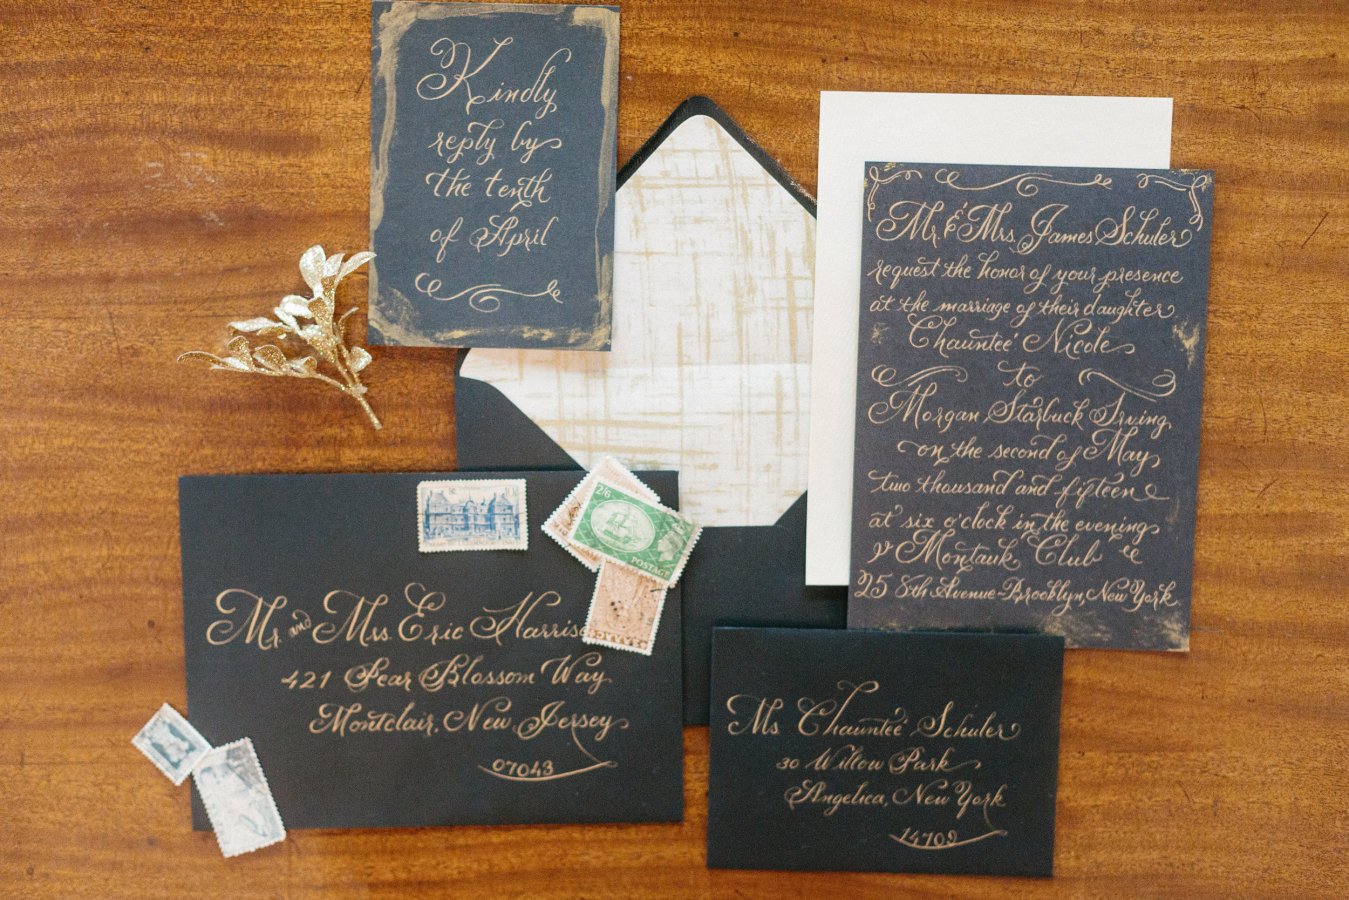 Kindly
reply by
the tenth
of April
Mr. & Mrs. James Schuler
request the honor of your presence
at the marriage of their daughter
Chauntee' Nicole
to
Morgan Starbuck Irving
on the second of May
two thousand and fifteen
at six o'clock in the evening
Montauk Club
25 8th Avenue-Brooklyn, New York
2/6
POSTAGE
Mr. and Mrs. Eric Harriso
421 Pear Blossom Way
Montclair, New Jersey
07043
Ms. Chauntee' Schuler
30 Willow Park
Angelica, New York
14709